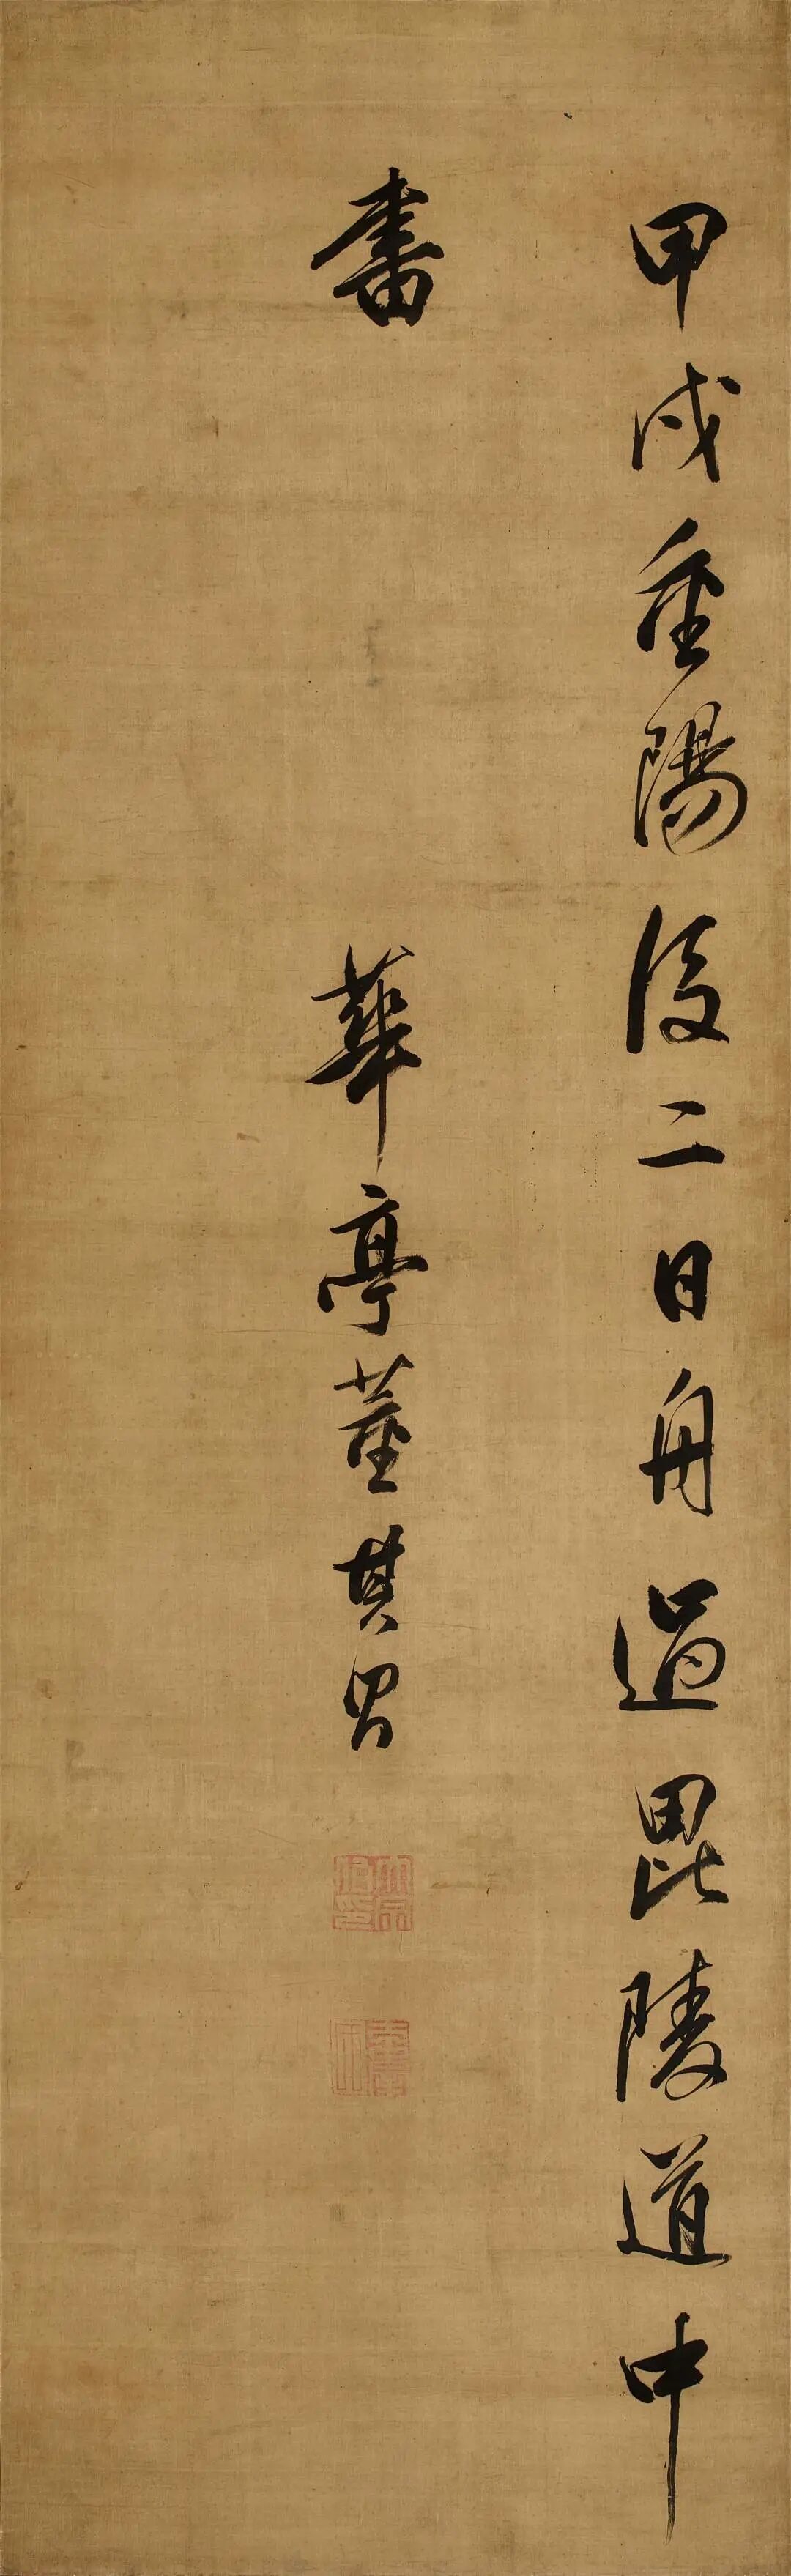 甲戌重陽後二日舟過毘陵道中
書 華亭董其昌